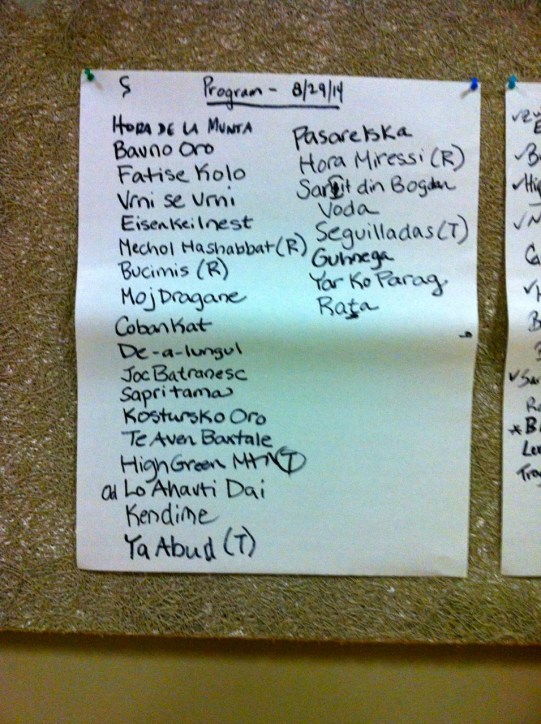 Ş
Program - 8/29/14
HORA DE LA MUNTA
Bavno Oro
Fatise Kolo
Vrni se Vrni
Eisenkeilnest
Mechol Hashabbat (R)
Bucimis (R)
Moj Dragane
Coban Kat
De-a-lungul
Joc Batranesc
Sapri tama
Kostursko Oro
Te Aven Baxtale
High Green MTN (T)
Ad Lo Ahavti Dai
Kendime
Ya Abud (T)
Pasarelska
Hora Miressi (R)
Sarit din Bogdan
Voda
Seguilladas (T)
Guhnega
Yar Ko Parag
Rața